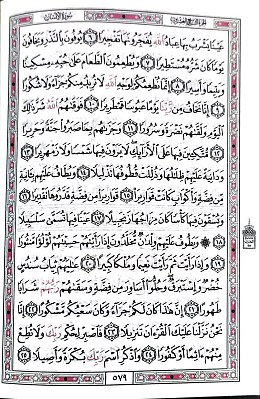 عَيْنًا يَشْرَبُ بِهَا عِبَادُ ٱللَّهِ يُفَجِّرُونَهَا تَفْجِيرًا ٦ يُوفُونَ بِٱلنَّذْرِ وَيَخَافُونَ
يَوْمًا كَانَ شَرُّهُۥ مُسْتَطِيرًا ٧ وَيُطْعِمُونَ ٱلطَّعَامَ عَلَىٰ حُبِّهِۦ مِسْكِينًا
وَيَتِيمًا وَأَسِيرًا ٨ إِنَّمَا نُطْعِمُكُمْ لِوَجْهِ ٱللَّهِ لَا نُرِيدُ مِنكُمْ جَزَآءً وَلَا شُكُورًا
٩ إِنَّا نَخَافُ مِن رَّبِّنَا يَوْمًا عَبُوسًا قَمْطَرِيرًا ١٠ فَوَقَىٰهُمُ ٱللَّهُ شَرَّ ذَٰلِكَ
ٱلْيَوْمِ وَلَقَّىٰهُمْ نَضْرَةً وَسُرُورًا ١١ وَجَزَىٰهُم بِمَا صَبَرُوا۟ جَنَّةً وَحَرِيرًا
١٢ مُّتَّكِـِٔينَ فِيهَا عَلَى ٱلْأَرَآئِكِ لَا يَرَوْنَ فِيهَا شَمْسًا وَلَا زَمْهَرِيرًا ١٣
وَدَانِيَةً عَلَيْهِمْ ظِلَٰلُهَا وَذُلِّلَتْ قُطُوفُهَا تَذْلِيلًا ١٤ وَيُطَافُ عَلَيْهِم بِـَٔانِيَةٍ
مِّن فِضَّةٍ وَأَكْوَابٍ كَانَتْ قَوَارِيرَا۠ ١٥ قَوَارِيرَا۟ مِن فِضَّةٍ قَدَّرُوهَا تَقْدِيرًا ١٦
وَيُسْقَوْنَ فِيهَا كَأْسًا كَانَ مِزَاجُهَا زَنجَبِيلًا ١٧ عَيْنًا فِيهَا تُسَمَّىٰ سَلْسَبِيلًا
١٨ وَيَطُوفُ عَلَيْهِمْ وِلْدَٰنٌ مُّخَلَّدُونَ إِذَا رَأَيْتَهُمْ حَسِبْتَهُمْ لُؤْلُؤًا مَّنثُورًا
١٩ وَإِذَا رَأَيْتَ ثَمَّ رَأَيْتَ نَعِيمًا وَمُلْكًا كَبِيرًا ٢٠ عَٰلِيَهُمْ ثِيَابُ سُندُسٍ
خُضْرٌ وَإِسْتَبْرَقٌ وَحُلُّوٓا۟ أَسَاوِرَ مِن فِضَّةٍ وَسَقَىٰهُمْ رَبُّهُمْ شَرَابًا
طَهُورًا ٢١ إِنَّ هَٰذَا كَانَ لَكُمْ جَزَآءً وَكَانَ سَعْيُكُم مَّشْكُورًا ٢٢ إِنَّا
نَحْنُ نَزَّلْنَا عَلَيْكَ ٱلْقُرْءَانَ تَنزِيلًا ٢٣ فَٱصْبِرْ لِحُكْمِ رَبِّكَ وَلَا تُطِعْ
مِنْهُمْ ءَاثِمًا أَوْ كَفُورًا ٢٤ وَٱذْكُرِ ٱسْمَ رَبِّكَ بُكْرَةً وَأَصِيلًا ٢٥
٥٧٩